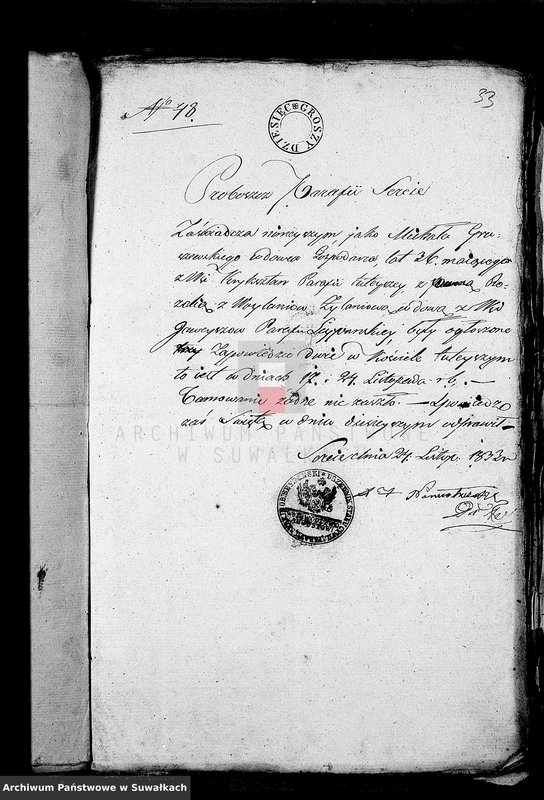 33
No 48.
DZIESIĘĆ GROSZY
Proboszcz Parafii Sereie
Zaświadcza ninieyszym jako Michała Gru-
szewskiego wdowca Gospodarza lat 26. maiącego
z Wsi Kryksztan Parafii tuteyszey z Panną Ro-
zalią z Woytaniów Żylaniową wdową z Wsi
Parafii były ogłoszone
trzy Zapowiedzie dwie w Kościele tuteyszym
to iest w dniach 17. i 24. Listopada r. b. —
Tamowanie żadne nie zaszło. — Spowiedz
zaś Świętą w dniu dzisieyszym odprawił —
Sereie dnia 24. Listop. 1833 r
ARCHIWUM PAŃSTWOWE
W SUWAŁKACH
Archiwum Państwowe w Suwałkach